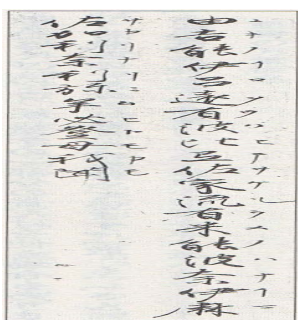 ユキノイロヲウハヒテサケルウメノハナイマ
由吉能伊呂遠有波比弖佐家流有米能波奈伊麻
サカリナリミムヒトモカモ
佐加利奈利弥牟必登母我聞